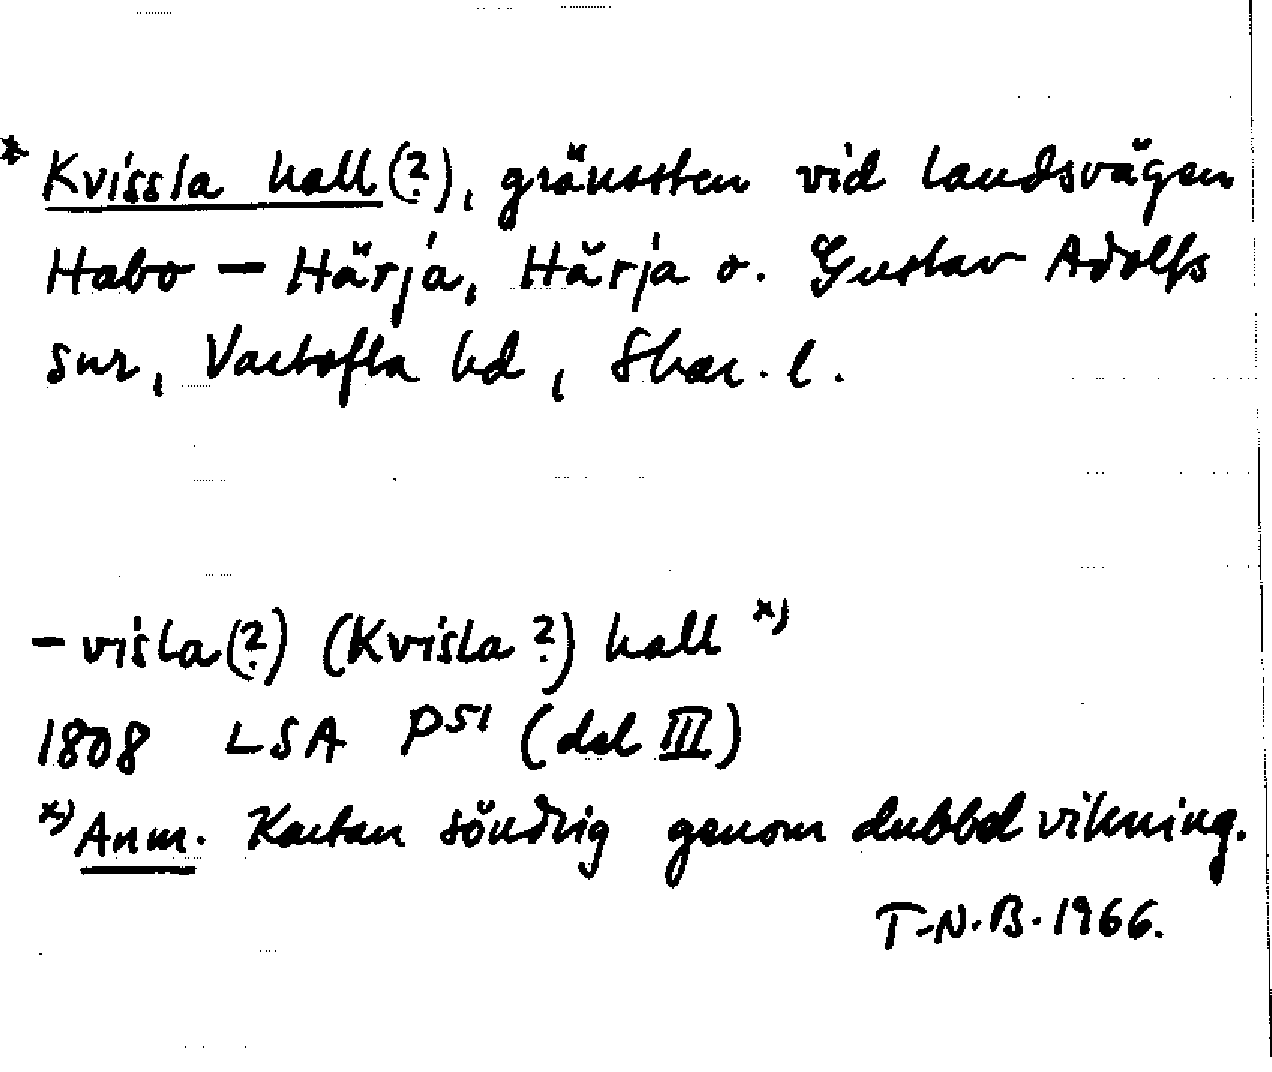 * Kvissla hall (?), gränssten vid landsvägen
Habo – Härja, Härja o. Gustav Adolfs
snr, Vartofta hd, Skar. l.
– visla (?) (Kvisla ?) hall x)
1808 LSA P51 (del III)
x) Anm. Kartan söndrig genom dubbel vikning.
T-N.B. 1966.